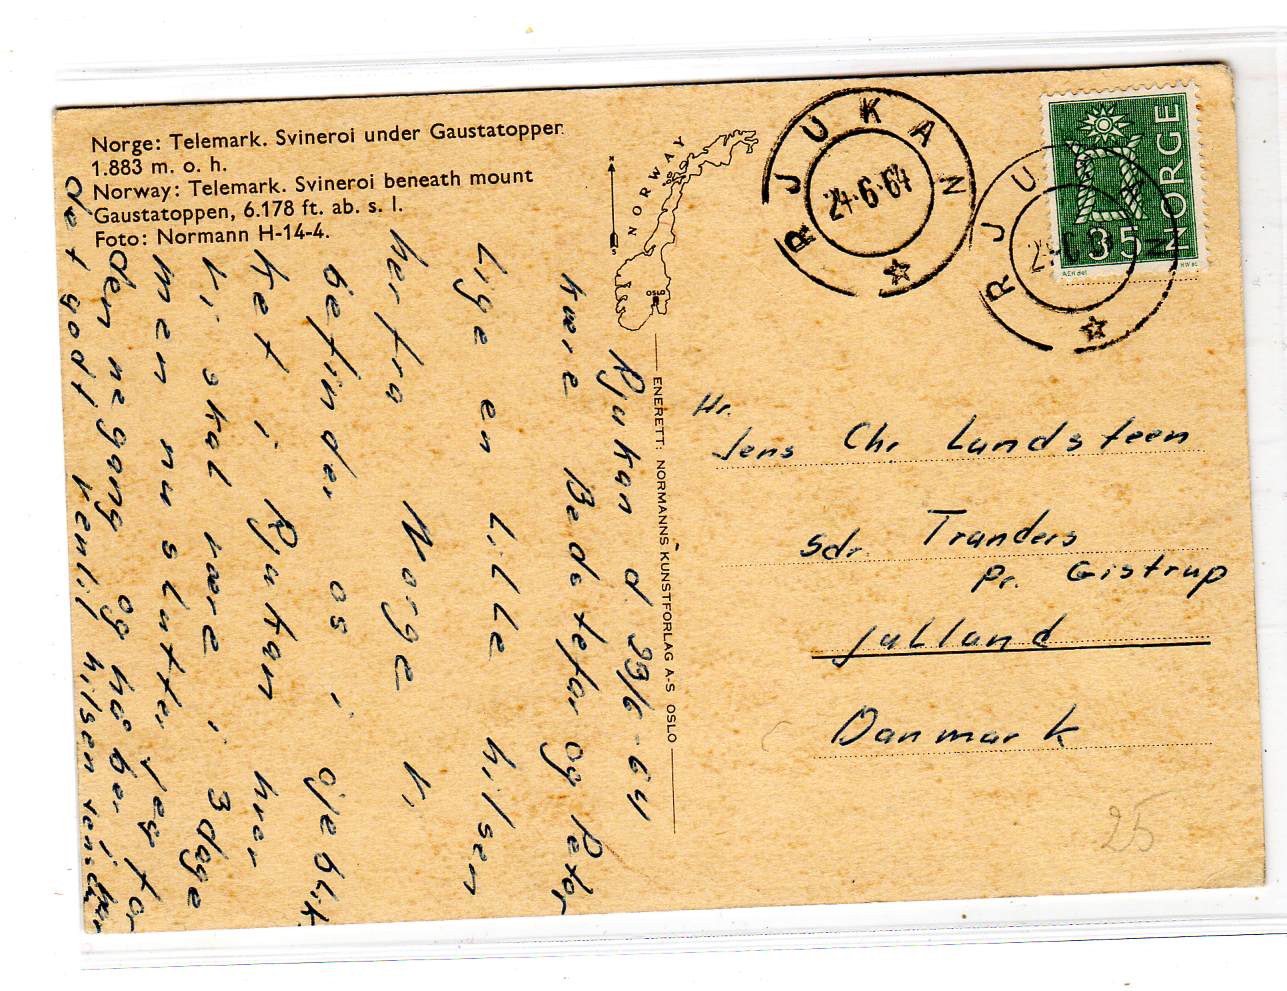 Norge: Telemark. Svineroi under Gaustatopper.
1.883 m. o. h.
Norway: Telemark. Svineroi beneath mount
Gaustatoppen, 6.178 ft. ab. s. l.
Foto: Normann H-14-4.
Rjukan d 23/6-64
kære Bedstefar og Peter
Lige en Lille hilsen
herfra Norge Vi
befinder os i øjeblik
ket i Rjukan hvor
vi skal være i 3 dage
men nu slutter jeg for
denne gang og håber i har
det godt, venlil hilsen
N
S
NORWAY
OSLO
ENERETT: NORMANNS KUNSTFORLAG A-S OSLO
RJUKAN
24.6.64
RJUKAN
NORGE
35
Hr.
Jens Chr Lundsteen
Sdr. Tranders
pr. Gistrup
Jylland
Danmark
25